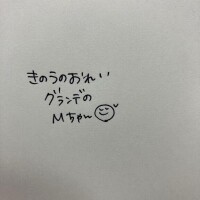 きのうのおれい
グランデの
Mちゃん